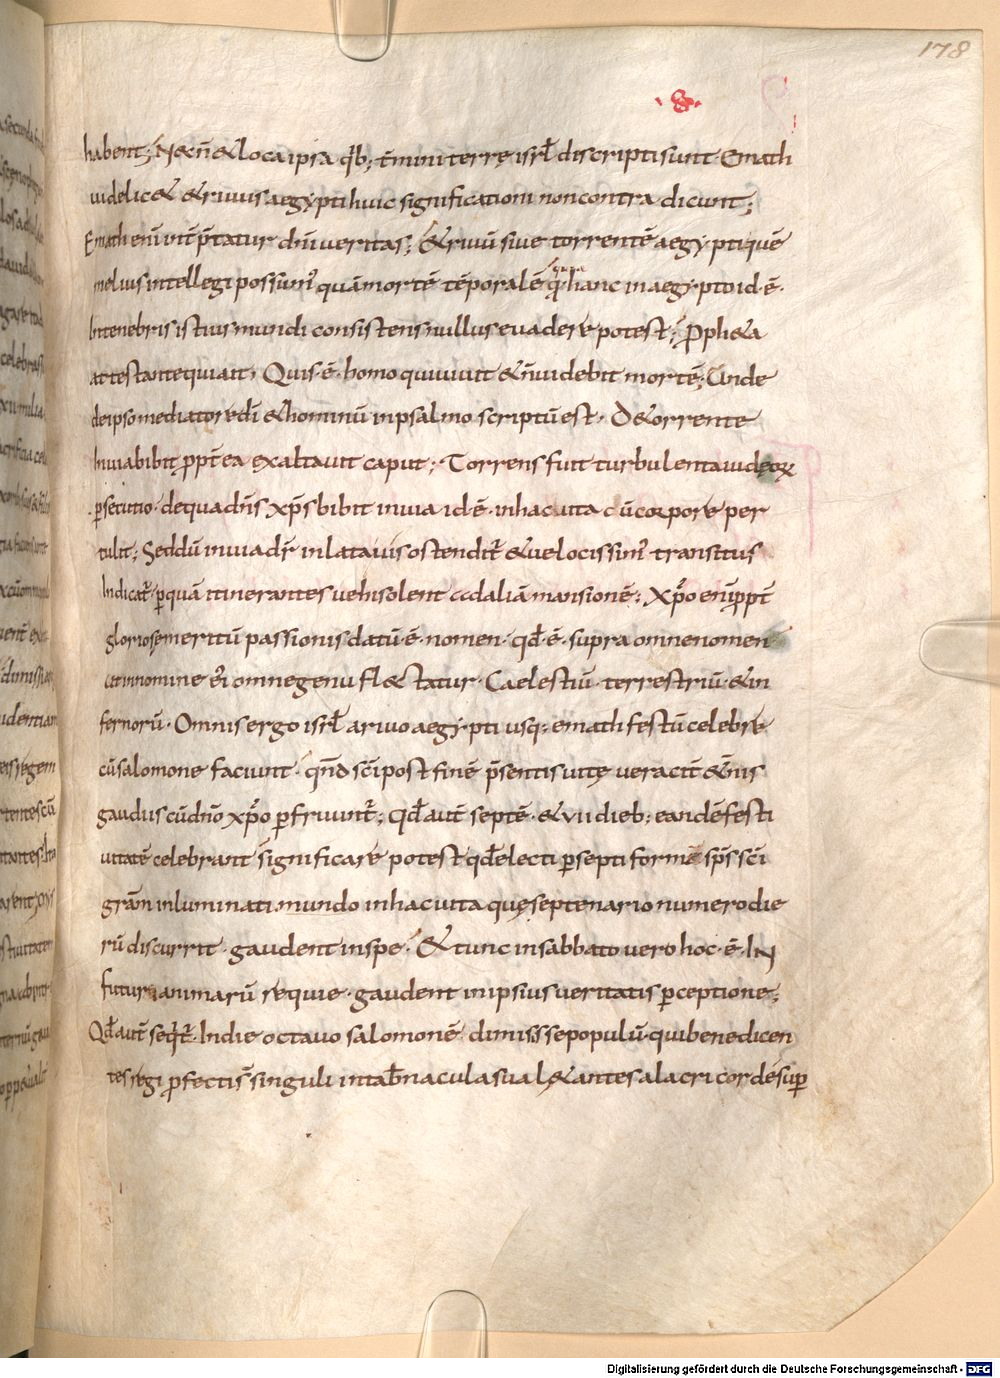 178
·&·
habent; Necñ & loca ipsa q̄b; t̄mini terrę isrł discripti sunt. Emath
uidelic& & riuus aegypti huic significationi non contradicunt;
Emath eni͂ int̄p̄tatur dn̄i ueritas; & riuū siue torrentē aegypti quē
melius intellegi possum᾽ quā mortē tēporalē q̄ hanc in aegypto id·ē·
In tenebris istius mundi consistens nullus euadere potest; Proph&a
attestante qui ait; Quis·ē· homo qui uiuit & n̄ uidebit mortē; Unde
de ipso mediatore dī & hominū in psalmo scriptū est. De torrente
In uia bibit propt̄ea exaltauit caput; Torrens fuit turbulenta iudęoꝝ
ꝑsecutio· de qua dn̄s xp̄s bibit in uia id·ē· in hac uita cū corpore per
tulit; Sed dū in uia dr̄ in lata uis ostendit̄ & uelocissim᾽ transitus
Indicat̄· ꝑ quā itinerantes uehi solent ad aliā mansionē; Xp̄o eni͂ ꝓpt̄
gloriosę meritū passionis datū·ē· nomen· qd̄·ē· supra omne nomen
ut in nomine ei᾽ omne genu fl&ctatur· Caelestiū· terrestriū· & in
fernorū· Omnis ergo isrł a riuo aegypti usq; emath festū celebre
cū salomone faciunt· qn̄do sc̄i post finē p̄sentis uitę ueracit̄ & nis
gaudiis cū dn̄o xp̄o ꝑfruunt̄; Qd̄ aut̄ septē· & vii dieb; eandē festi
uitatē celebrant significare potest qd̄ electi ꝑ septiformē sp̄s sc̄i
grām inluminati mundo in hac uita quę septenario numero die
rū discurrit· gaudent in spe· & tunc in sabbato uero hoc·ē· IN
futura animarū requie· gaudent in ipsius ueritatis ꝑceptione;
Qd̄ aut̄ seq̄t̄· In die octauo salomonē dimisisse populū· qui benedicen
tes regi ꝓfecti s̄ singuli in tab̄nacula sua l&antes alacri corde sup̄
Digitalisierung gefördert durch die Deutsche Forschungsgemeinschaft - DFG